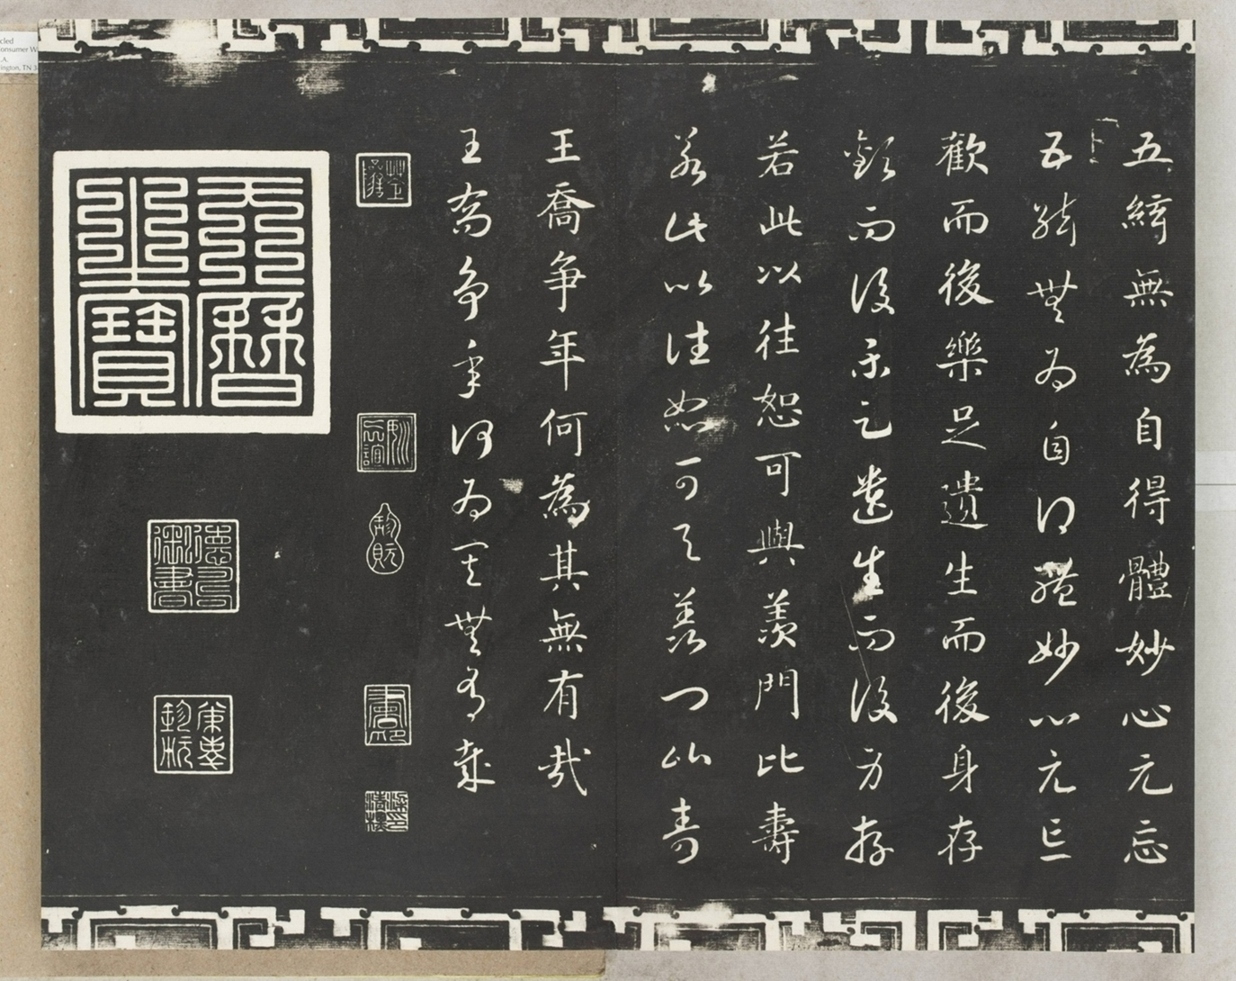 五綺無為自得體妙心元忘
五綺無為自得體妙心元忘
歡而後樂足遺生而後身存
歡而後樂足遺生而後身存
若此以往恕可與羨門比壽
若此以往恕可與羨門比壽
王喬爭年何為其無有哉
王喬爭年何為其無有哉
天曆之寶